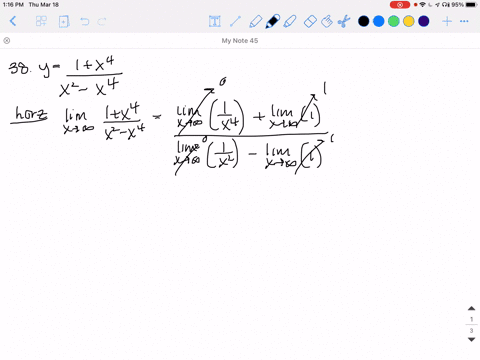 1:16 PM Thu Mar 18
95%
My Note 45
38. y = (1+x⁴)/(x²-x⁴)
horz lim x→∞ (1+x⁴)/(x²-x⁴) = (lim x→∞ (1/x⁴) 0 + lim x→∞ (1) 1)/(lim x→∞ (1/x²) 0 - lim x→∞ (1) 1)
1
3